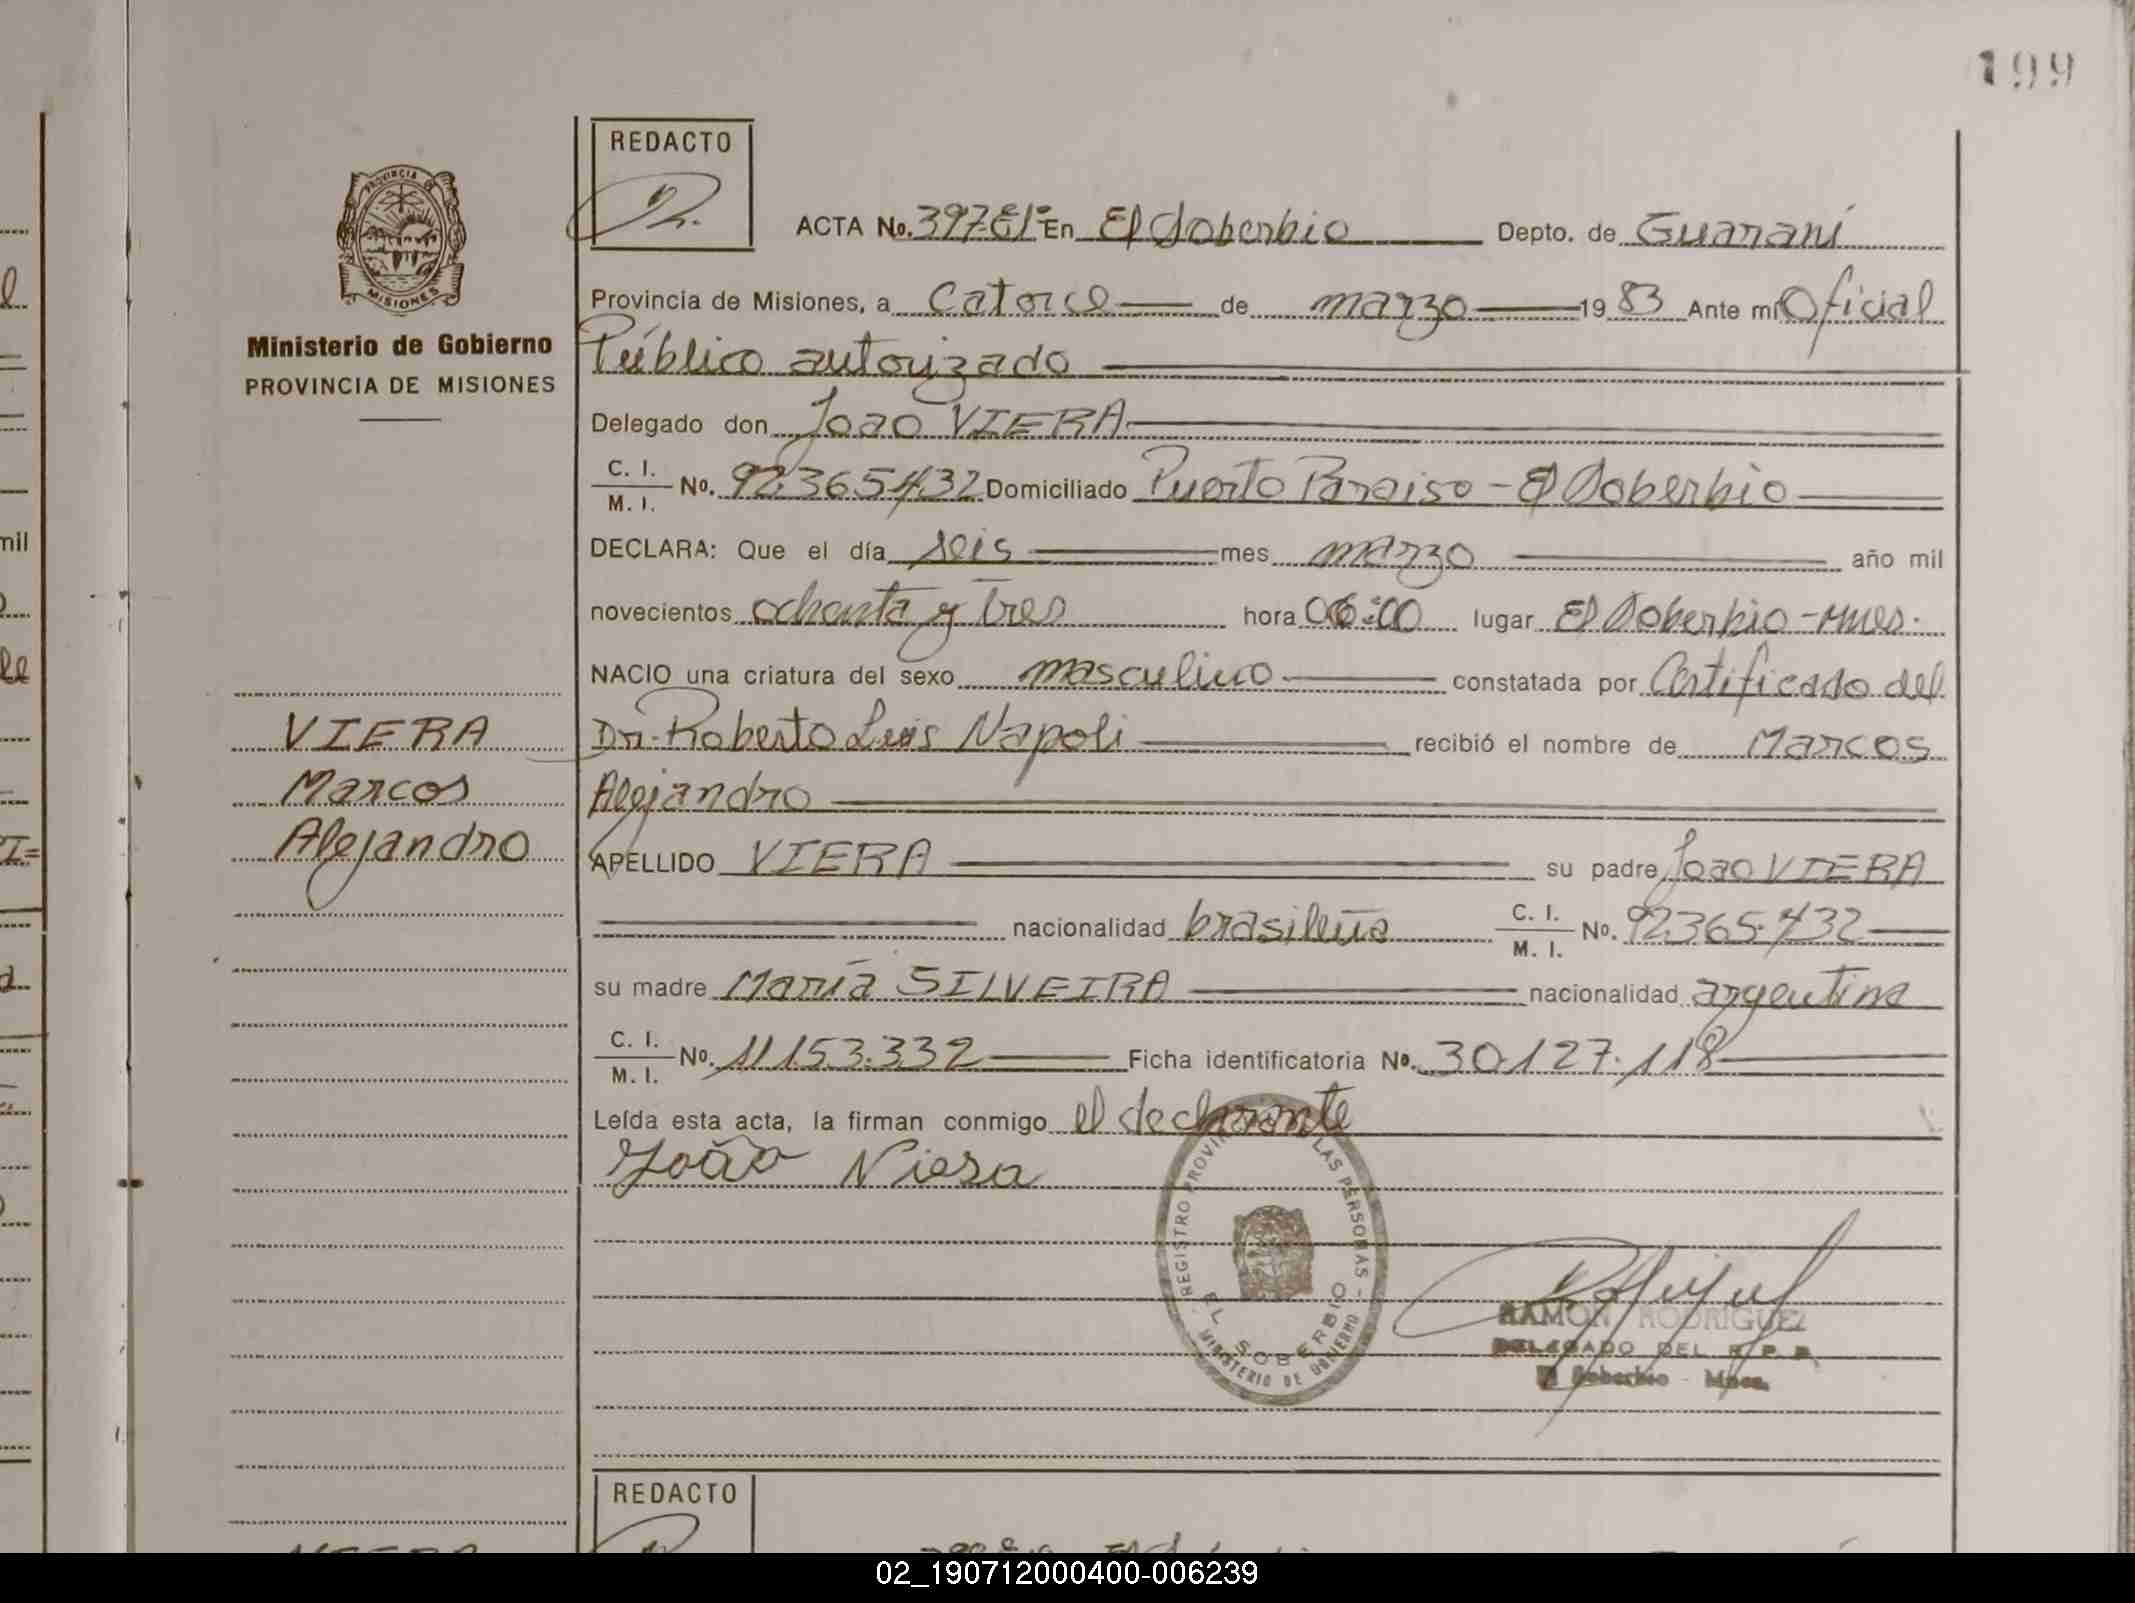 199
REDACTO
ACTA No. 397-E1º En El Soberbio Depto. de Guaraní
Provincia de Misiones, a catorce de marzo 1983 Ante mí Oficial
Público autorizado
Delegado don Joao VIERA
C. I.
M. I. No. 92.365.432 Domiciliado Puerto Paraiso - El Soberbio
DECLARA: Que el día seis mes marzo año mil
novecientos ochenta y tres hora 06:00 lugar El Soberbio - Mnes.
NACIO una criatura del sexo masculino constatada por Certificado del
Dr. Roberto Luis Napoli recibió el nombre de Marcos
Alejandro
APELLIDO VIERA su padre Joao VIERA
nacionalidad brasileña C. I.
M. I. No. 92.365.432
su madre María SILVEIRA nacionalidad argentina
C. I.
M. I. No. 11.153.332 Ficha identificatoria No. 30.127.118
Leída esta acta, la firman conmigo el declarante
João Viera
PROVINCIA
MISIONES
Ministerio de Gobierno
PROVINCIA DE MISIONES
VIERA
Marcos
Alejandro
REGISTRO PROVIN LAS PERSONAS
EL SOBERBIO
MINISTERIO DE GOBIERNO
RAMON RODRIGUEZ
DELEGADO DEL R. P. P.
El Soberbio - Mnes.
REDACTO
02_190712000400-006239